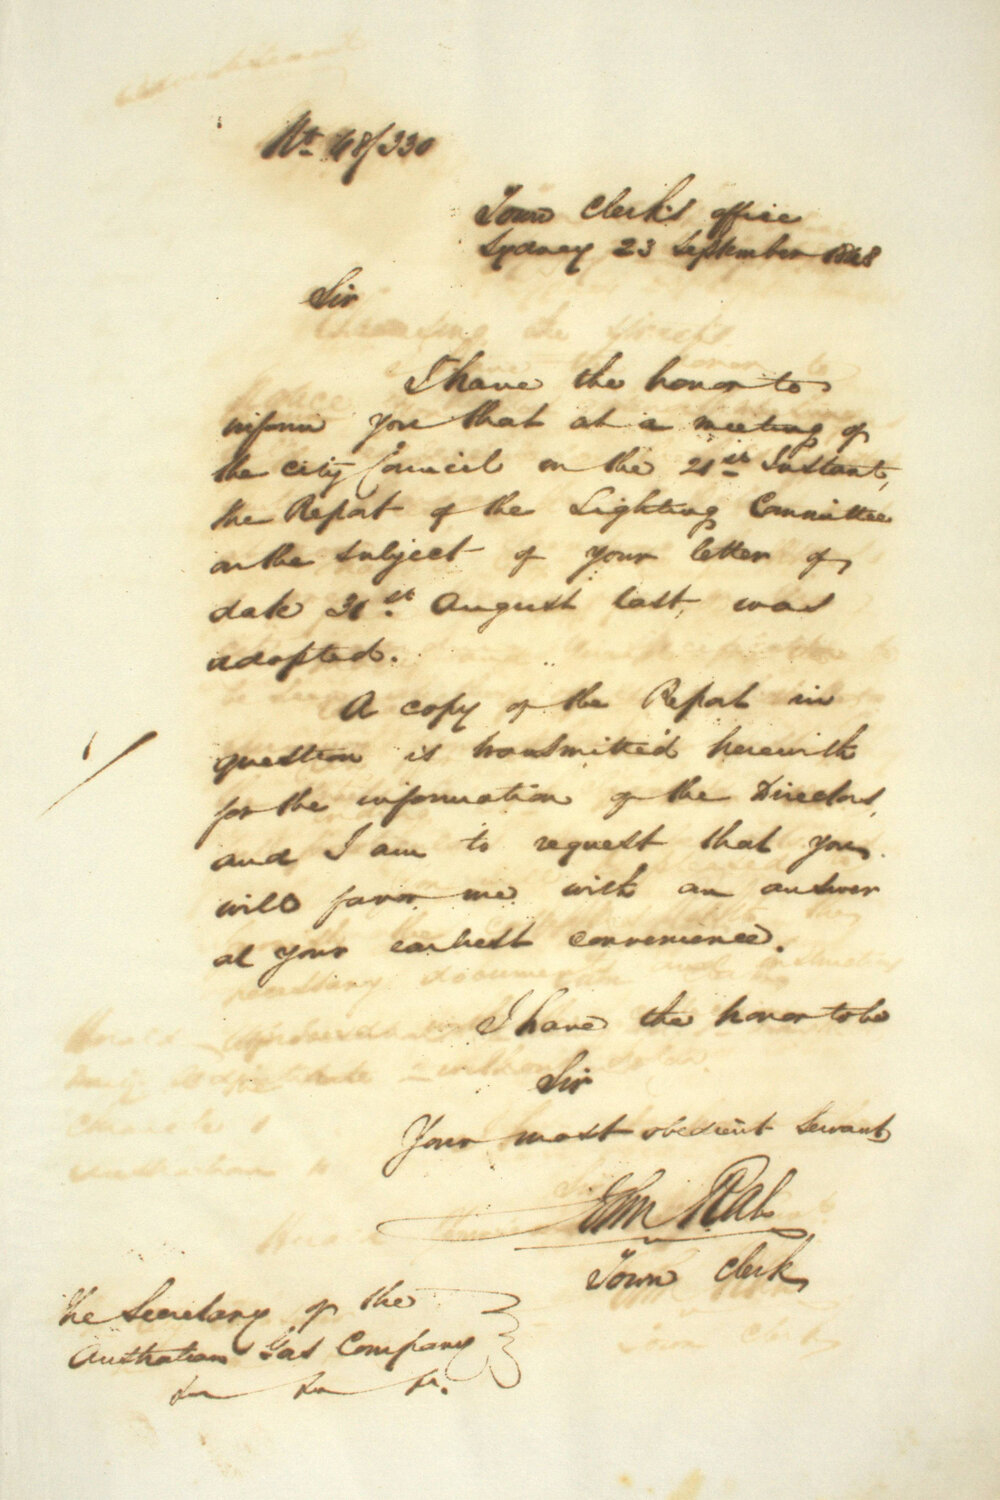 No. 48/330
Town Clerk's Office
Sydney 23 September 1848
Sir
I have the honor to
inform you that at a meeting of
the City Council on the 21st Instant,
the Report of the Lighting Committee
on the subject of your letter of
date 31st August last, was
adopted.
A copy of the Report in
question is transmitted herewith
for the information of the Directors,
and I am to request that you
will favor me with an answer
at your earliest convenience.
I have the honor to be
Sir
Your most obedient servant
Town Clerk
The Secretary of the
Australian Gas Company